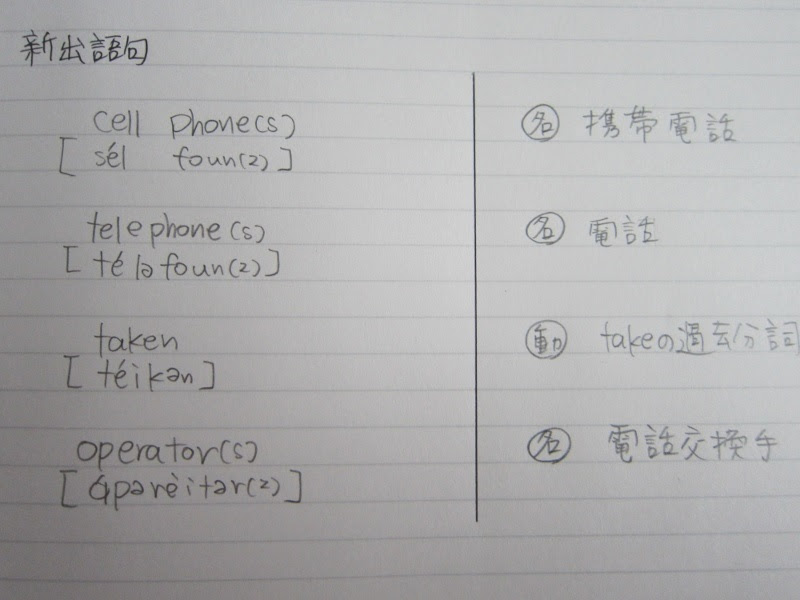 新出語句
cell phone(s) 名 携帯電話
[sél foun(z)]
telephone(s) 名 電話
[téləfoun(z)]
taken 動 takeの過去分詞
[téikən]
operator(s) 名 電話交換手
[ápərèitər(z)]